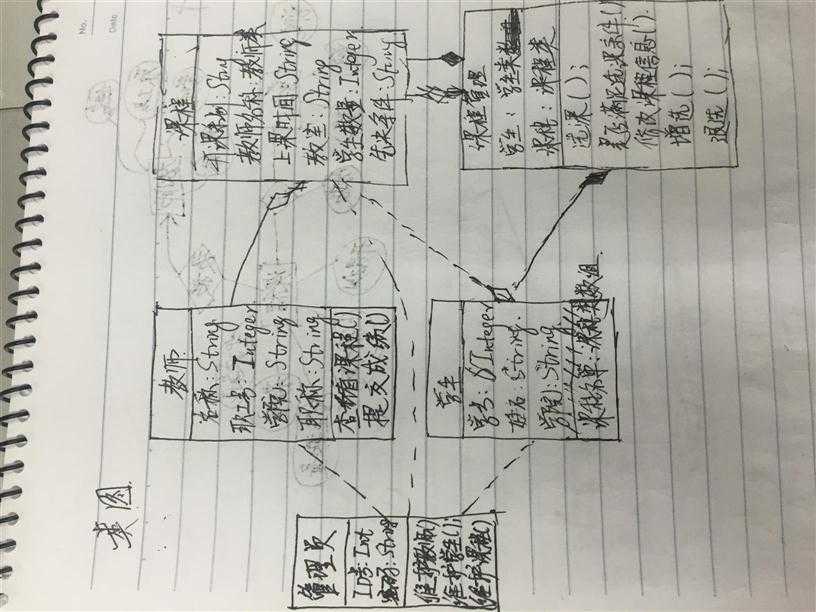 类图
管理员
ID号: Int
密码: String
维护教师()
维护学生();
维护课程()
教师
名称: String
职工号: Integer
学院: String
职称: String
查询课程()
提交成绩()
学生
学号: Integer
姓名: String
学院: String
课程类数组
课程
开课 String
教师名称 教师类
上课时间: String
教室: String
学生数量: Integer
先决条件: String
课程管理
学生: 学生类
课程: 课程类
选课();
是否满足先决条件()
修改课程信息();
增选();
退选();
No.
Date